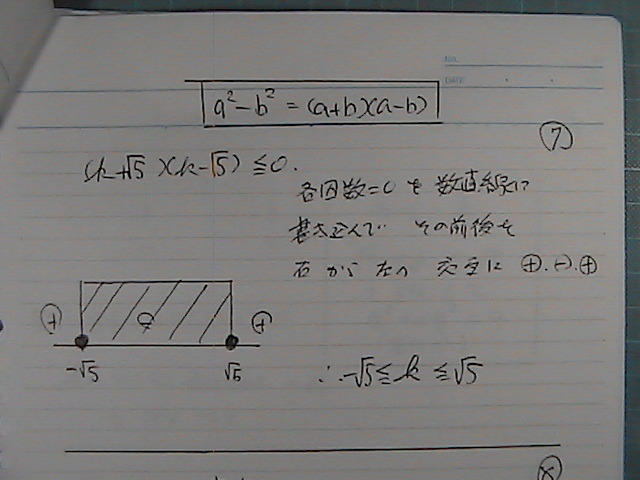 NO.
DATE
a²-b² = (a+b)(a-b)
⑦
(k+√5)(k-√5)≦0.
各因数=0を数直線に
書き込んで その前後を
右から左へ 交互に ⊕.⊖.⊕
⊕ ⊖ ⊕
-√5 √5
∴-√5≦k≦√5